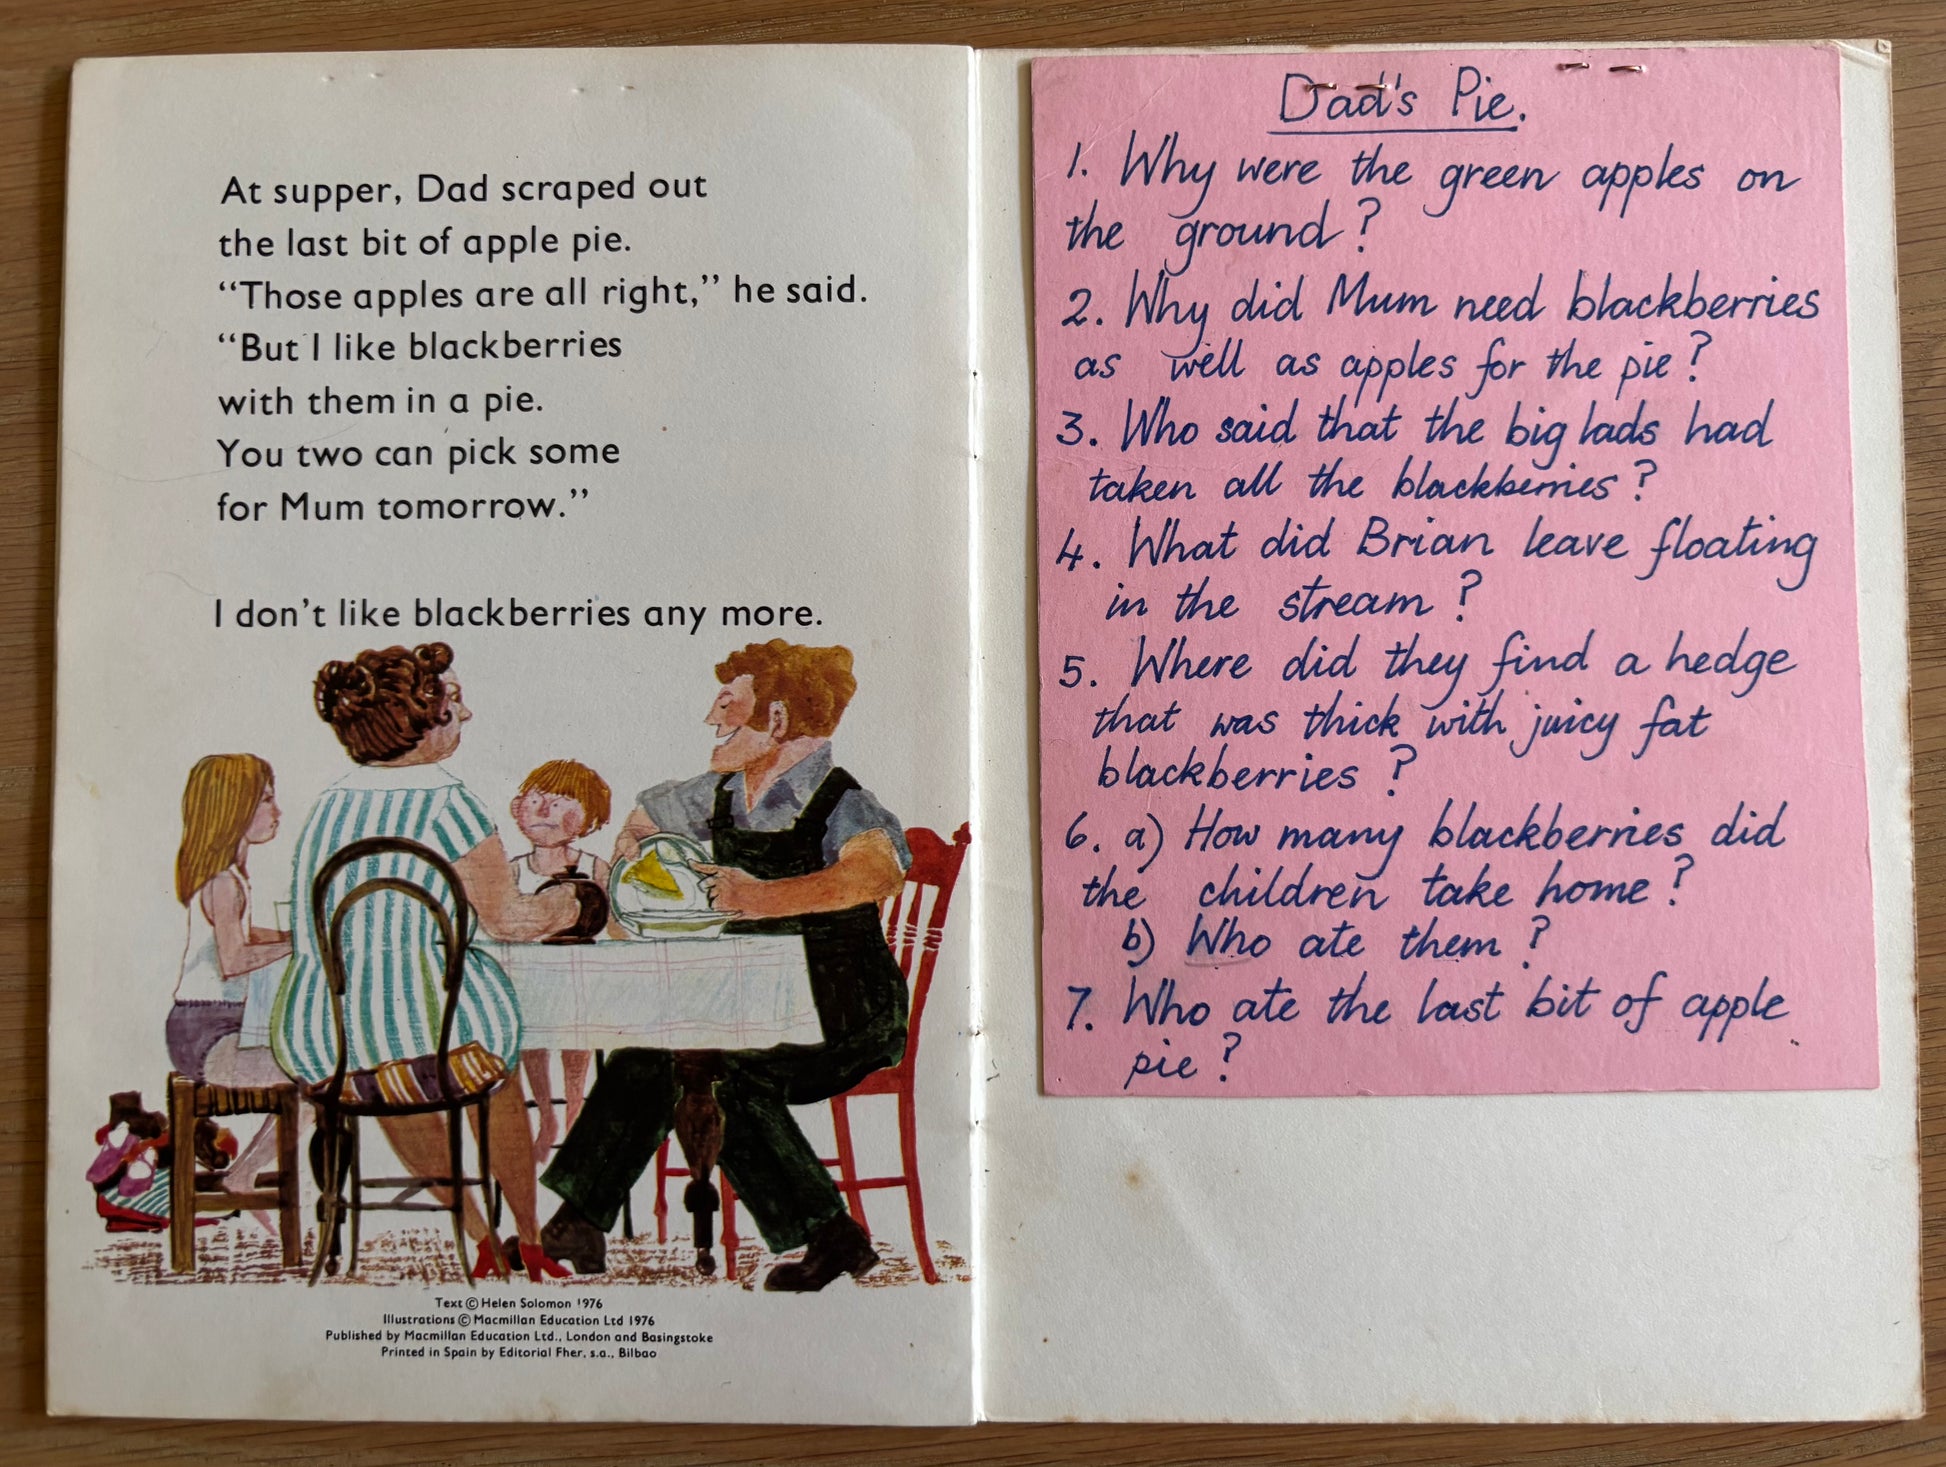 At supper, Dad scraped out
the last bit of apple pie.
“Those apples are all right,” he said.
“But I like blackberries
with them in a pie.
You two can pick some
for Mum tomorrow.”
I don’t like blackberries any more.
Text © Helen Solomon 1976
Illustrations © Macmillan Education Ltd 1976
Published by Macmillan Education Ltd., London and Basingstoke
Printed in Spain by Editorial Fher, s.a., Bilbao
Dad's Pie.
1. Why were the green apples on
the ground?
2. Why did Mum need blackberries
as well as apples for the pie?
3. Who said that the big lads had
taken all the blackberries?
4. What did Brian leave floating
in the stream?
5. Where did they find a hedge
that was thick with juicy fat
blackberries?
6. a) How many blackberries did
the children take home?
b) Who ate them?
7. Who ate the last bit of apple
pie?